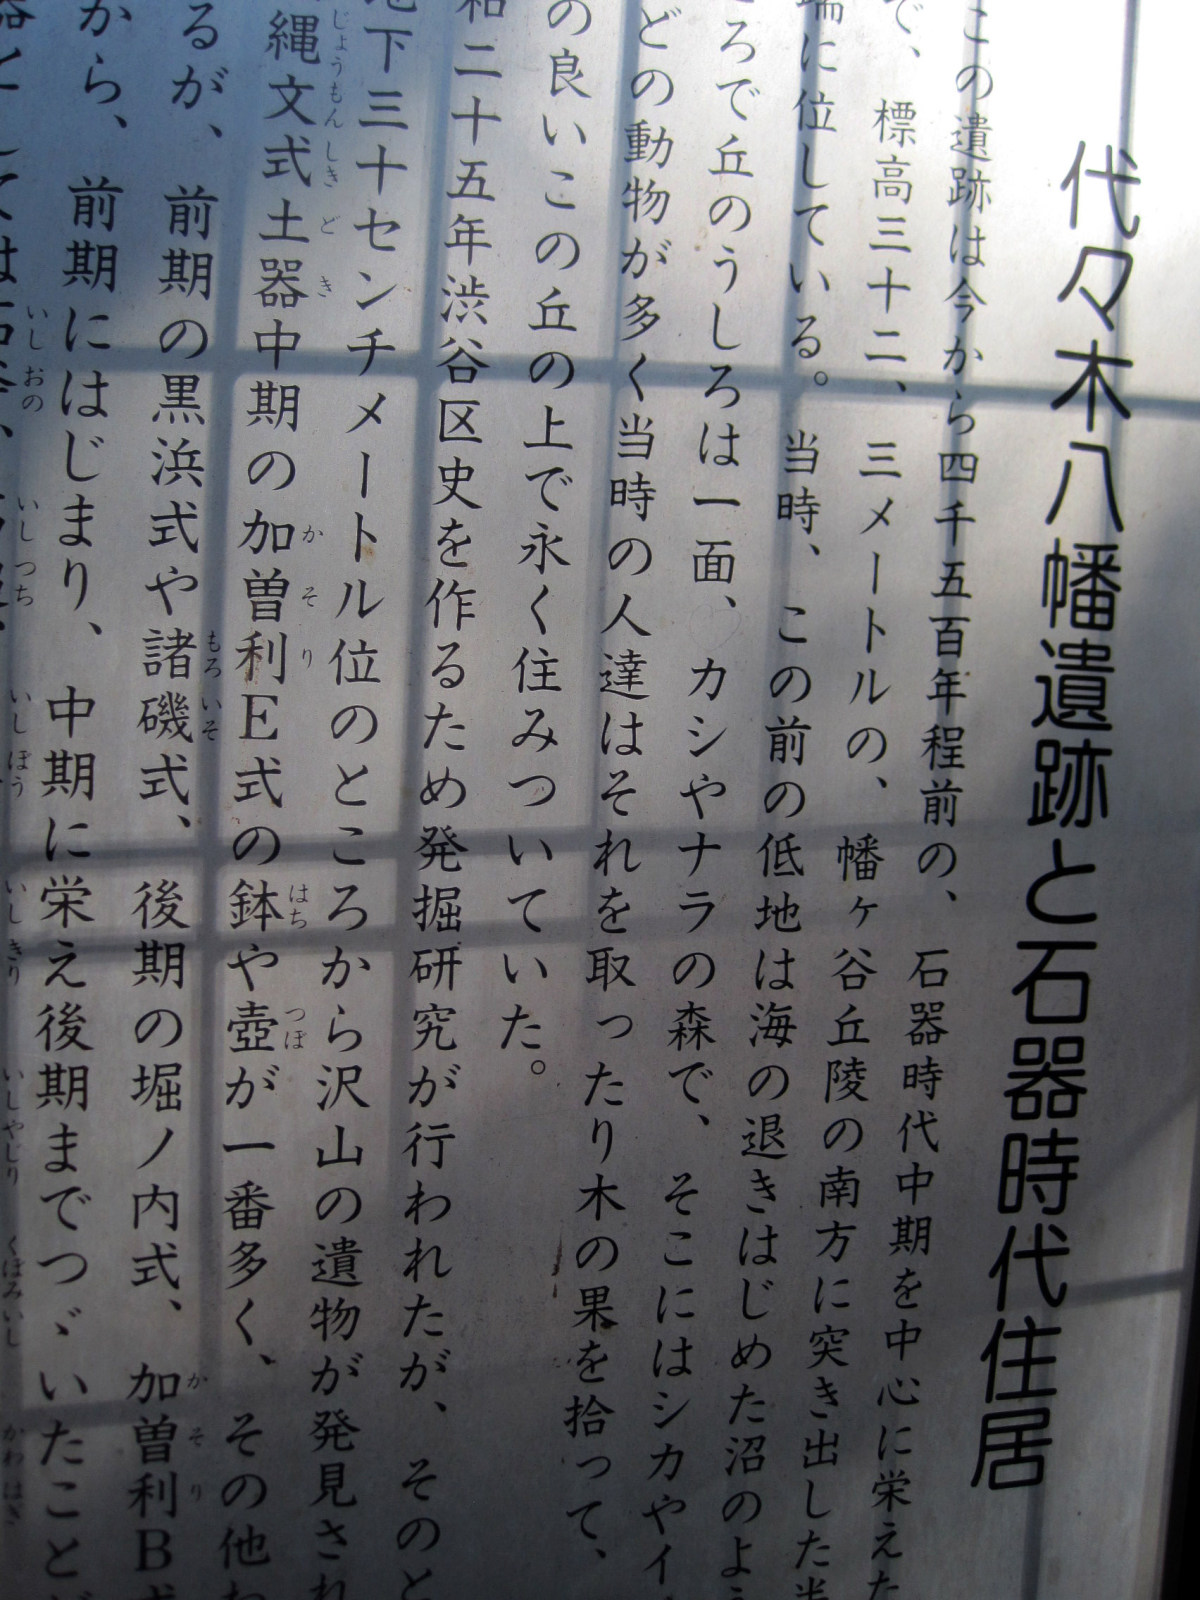 代々木八幡遺跡と石器時代住居
この遺跡は今から四千五百年程前の、石器時代中期を中心に栄えた
で、標高三十二、三メートルの、幡ヶ谷丘陵の南方に突き出した半
端に位している。当時、この前の低地は海の退きはじめた沼のよう
ころで丘のうしろは一面、カシやナラの森で、そこにはシカやイ
どの動物が多く当時の人達はそれを取ったり木の果を拾って、
の良いこの丘の上で永く住みついていた。
和二十五年渋谷区史を作るため発掘研究が行われたが、そのと
地下三十センチメートル位のところから沢山の遺物が発見され
縄文式土器中期の加曽利E式の鉢や壺が一番多く、その他
じょうもんしきどき かそり はち つぼ
るが、前期の黒浜式や諸磯式、後期の堀ノ内式、加曽利B式
もろいそ かそり
から、前期にはじまり、中期に栄え後期までつゞいたことが
いしおの いしつち いしぼう いしきり いしやじり くぼみいし かわはぎ